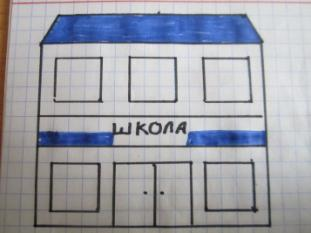 ШКОЛА